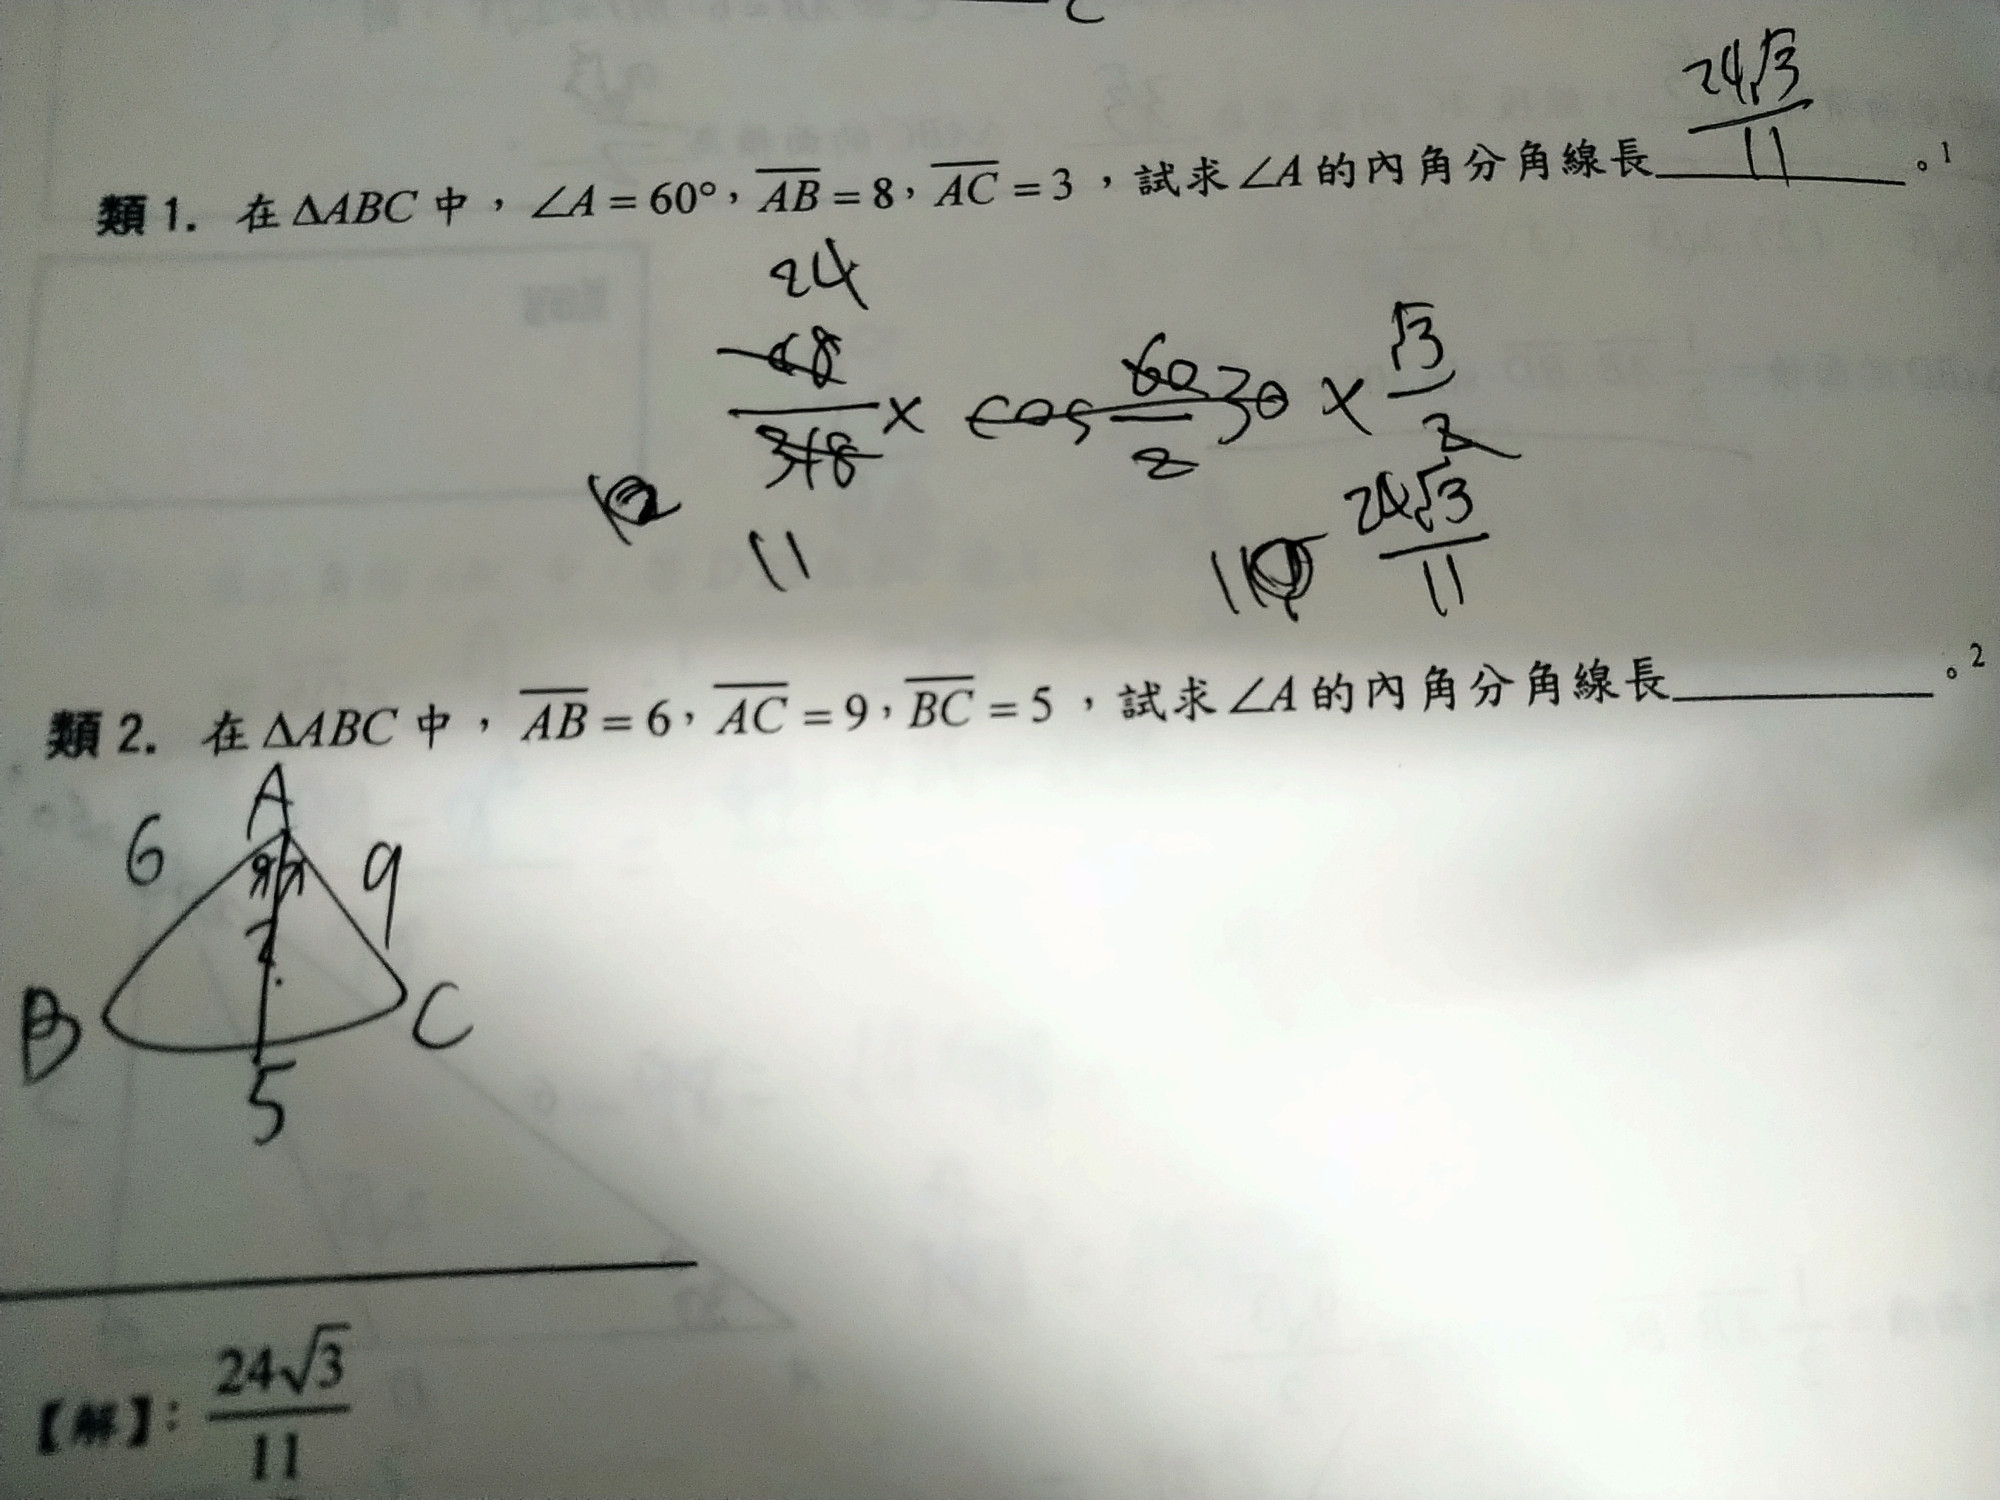 24√3
11
類1. 在ΔABC中，∠A=60°，AB=8，AC=3，試求∠A的內角分角線長________。1
24
48
3+8
× cos 60 30 × √3
2
2
24√3
11
11
類2. 在ΔABC中，AB=6，AC=9，BC=5，試求∠A的內角分角線長________。2
A
6 9
B C
5
【解】: 24√3
11